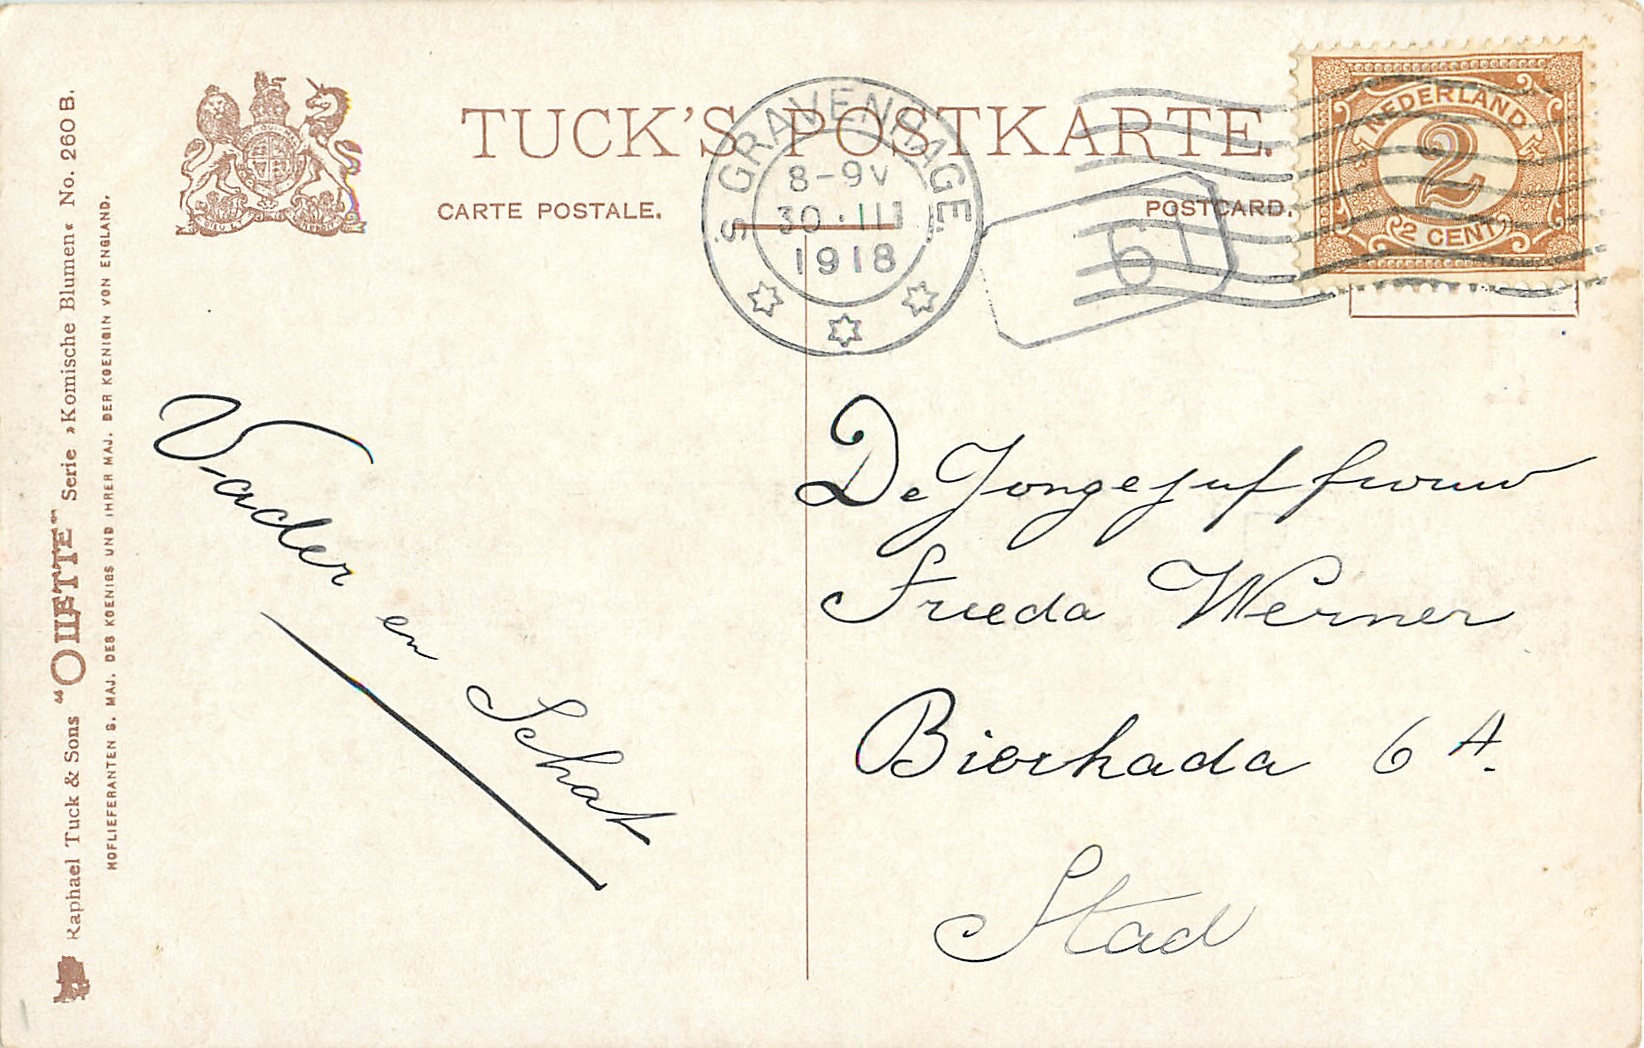 TUCK'S POSTKARTE.
CARTE POSTALE.
POSTCARD.
'S GRAVENHAGE.
8-9V
30·III
1918
61
NEDERLAND
2
2 CENT
Raphael Tuck & Sons “OILETTE” Serie »Komische Blumen« No. 260 B.
HOFLIEFERANTEN S. MAJ. DES KOENIGS UND IHRER MAJ. DER KOENIGIN VON ENGLAND.
Vader en Schat
De Jongejuffrouw
Frieda Werner
Bierkada 6 A.
Stad